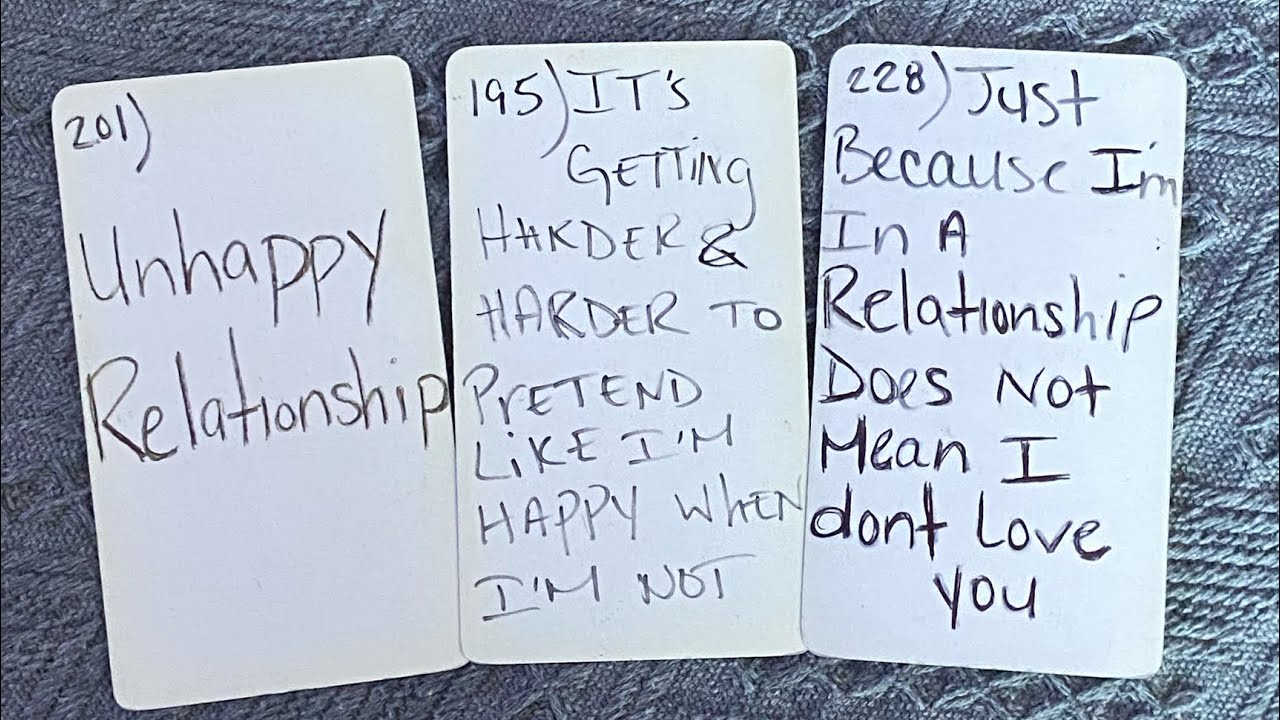 201)
Unhappy
Relationship
195) IT's
GETTING
HARDER &
HARDER TO
PrETEND
LiKE I'M
HAPPY WHEN
I'M NOT
228) Just
Because I'm
In A
Relationship
Does Not
Mean I
dont Love
you